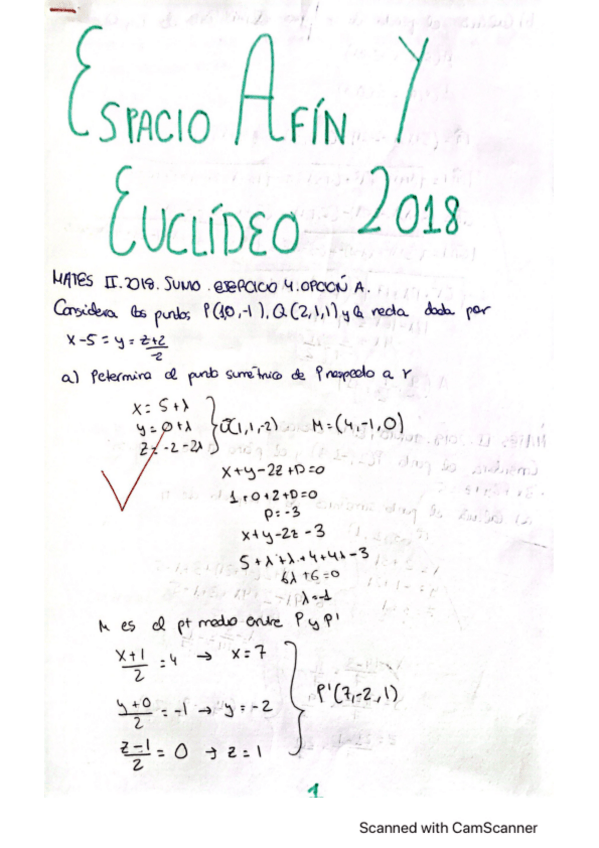 ESPACIO AFÍN Y
EUCLÍDEO 2018
MATES II.2018. JUNIO. EJERCICIO 4. OPCIÓN A.
Considera los puntos P(1,0,-1), Q(2,1,1) y la recta dada por
x-5 = y = z+2/-2
a) Determina el punto simétrico de P respecto a r
x = 5+λ
y = 0+λ } v⃗(1,1,-2) M=(4,-1,0)
z = -2-2λ
x+y-2z+D=0
1+0+2+D=0
D=-3
x+y-2z-3
5+λ+λ+4+4λ-3
6λ+6=0
λ=-1
M es el pt medio entre P y P'
x+1/2 = 4 → x=7
y+0/2 = -1 → y=-2 } P'(7,-2,1)
z-1/2 = 0 → z=1
1
Scanned with CamScanner